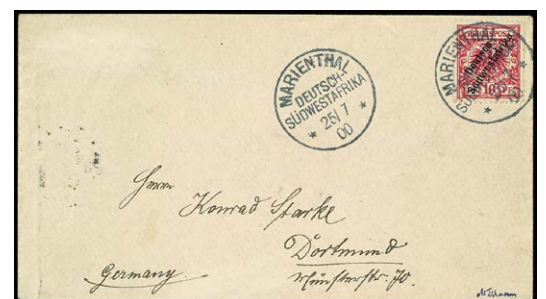 MARIENTHAL
DEUTSCH-
SÜDWESTAFRIKA
25/7
00
MARIENTHAL
Deutsch-
Südwestafrika
10
Herrn
Konrad Starke
Dortmund
Germany.
Münsterstr. 70.